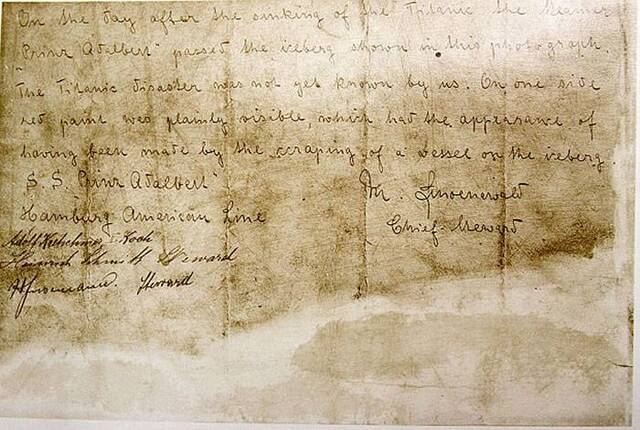 On the day after the sinking of the Titanic the steamer
"Prinz Adalbert" passed the iceberg shown in this photograph.
The Titanic disaster was not yet known by us. On one side
red paint was plainly visible, which had the appearance of
having been made by the scraping of a vessel on the iceberg.
S. S. "Prinz Adalbert"
Hamburg American Line
M. Linoenewald
Chief Steward
Adolf I. Koch
Heinrich Steward
Steward